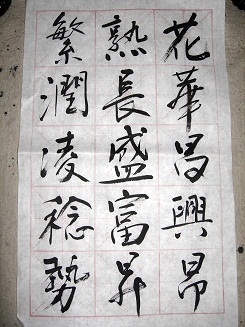 花華昌興昂
熟長盛富昇
繁潤凌稔勢